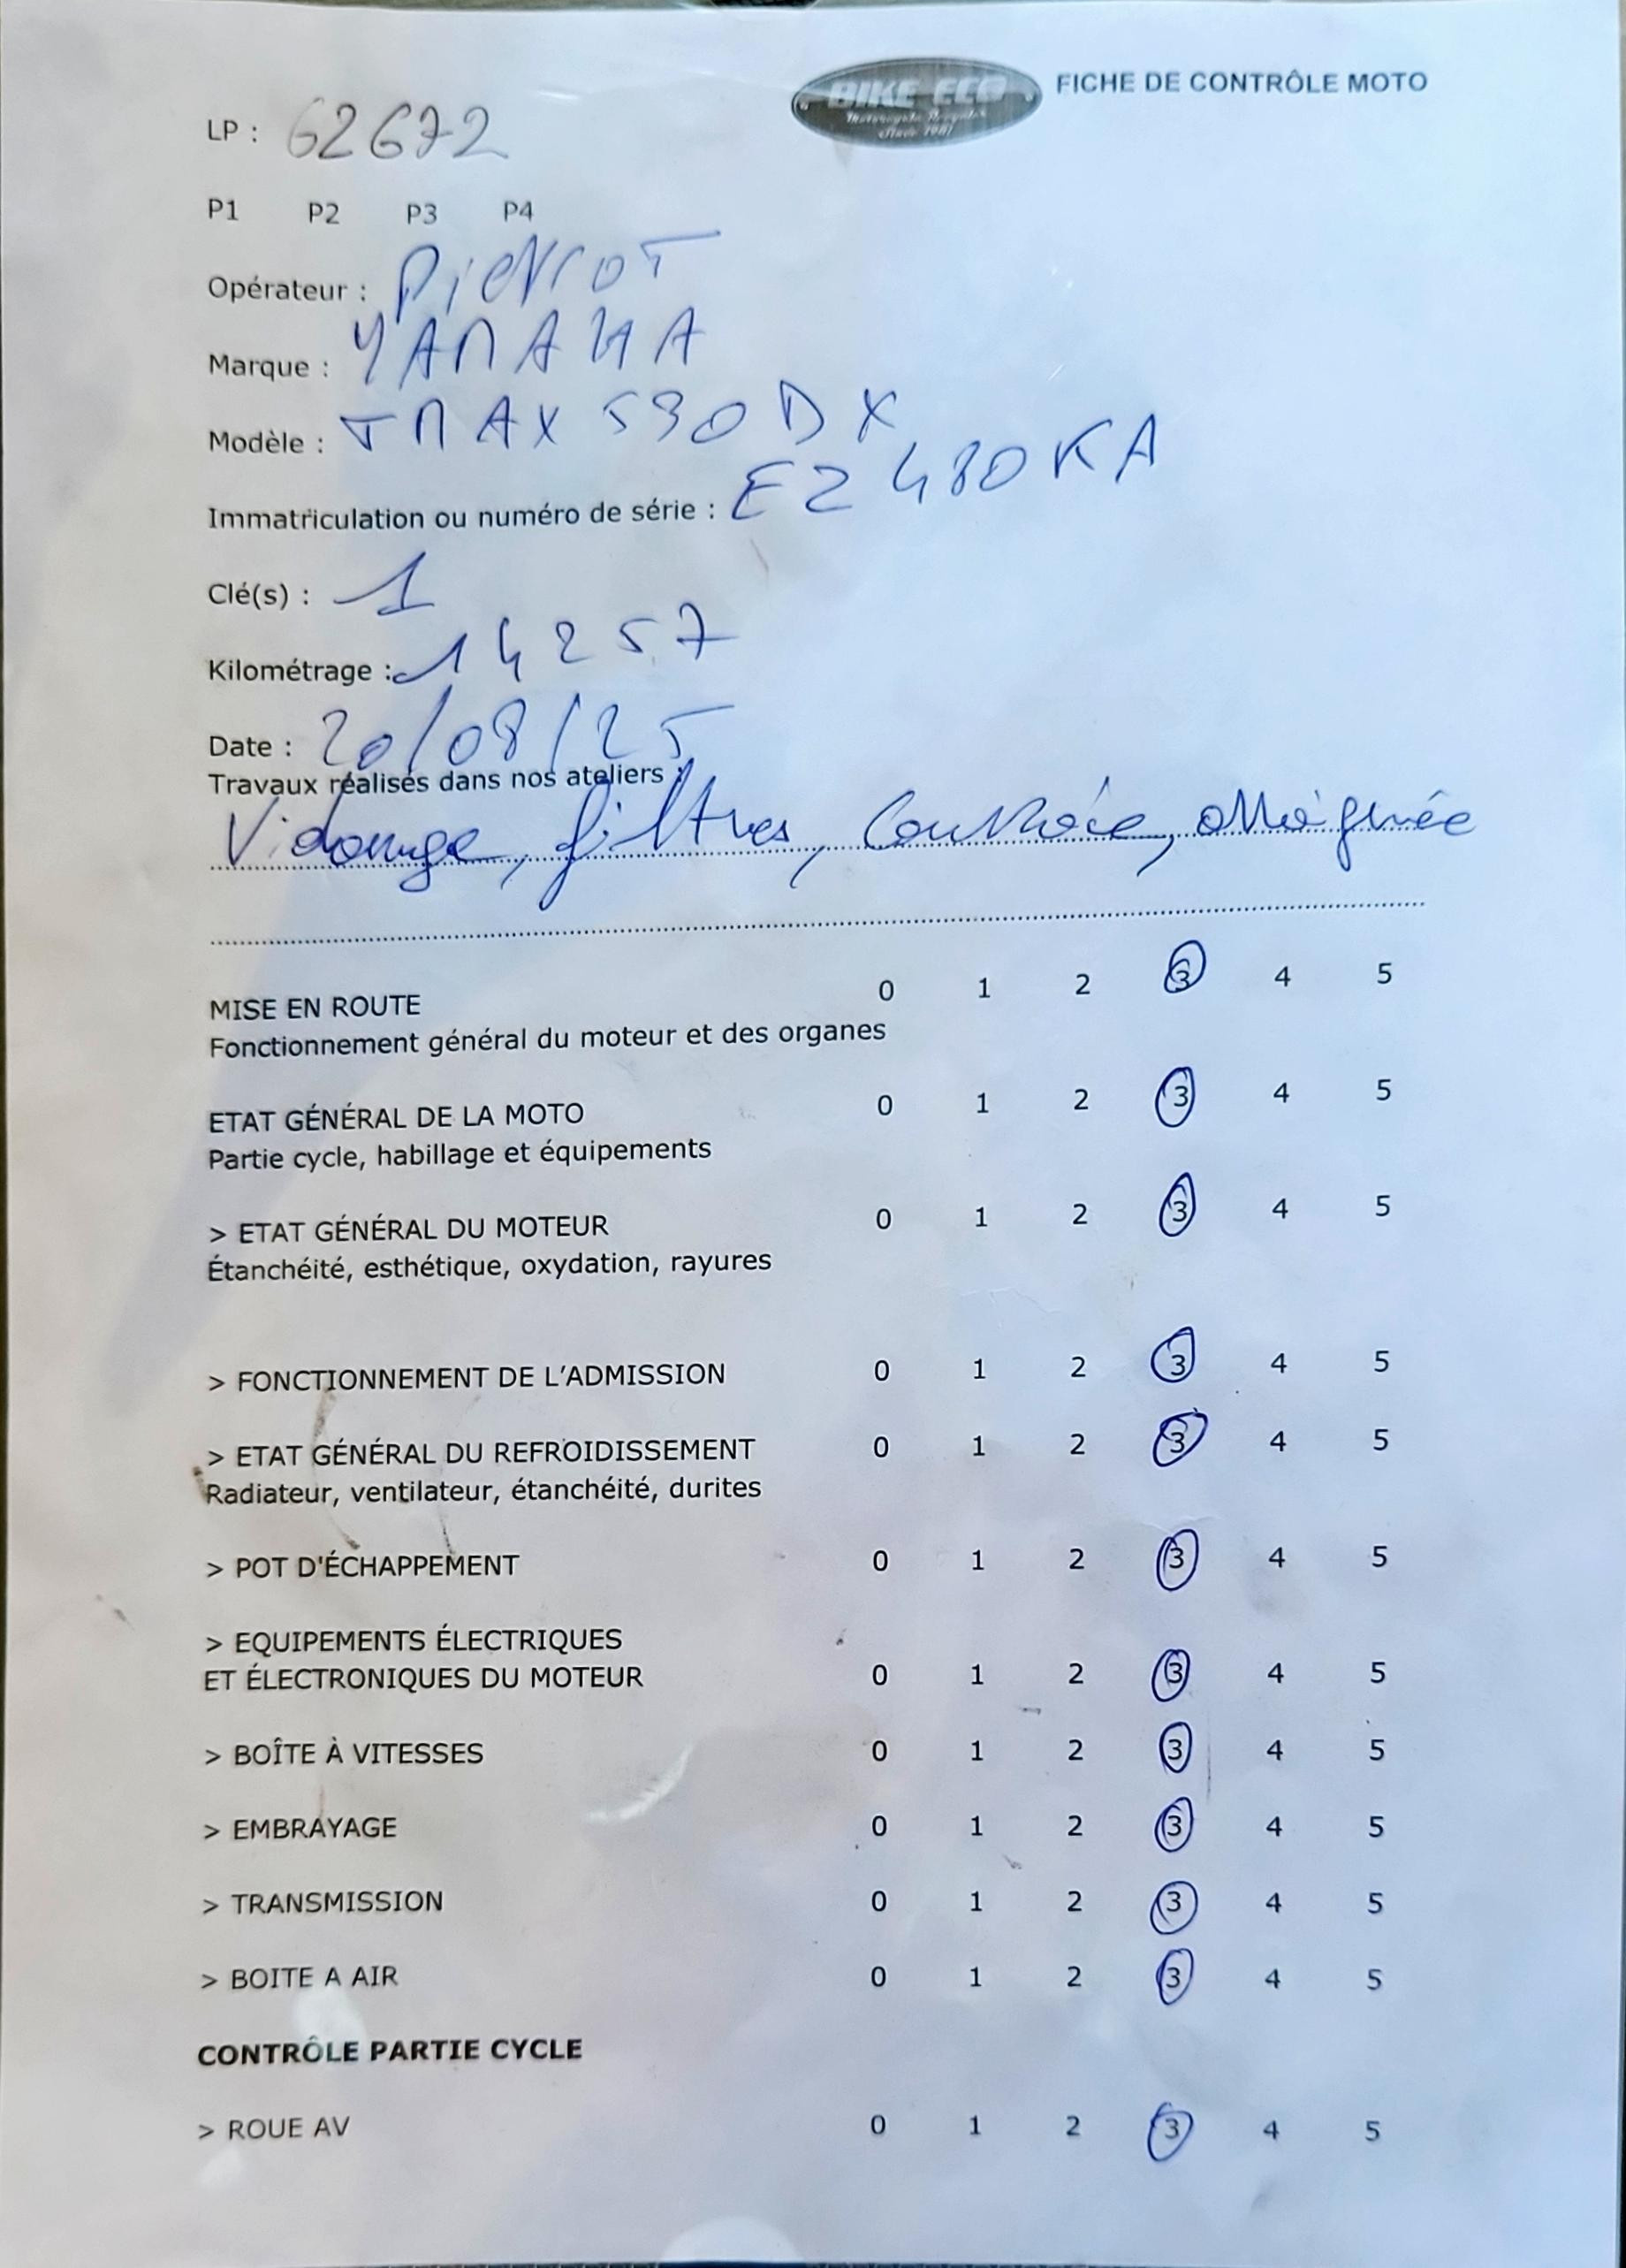 BIKE ECO
FICHE DE CONTRÔLE MOTO
LP : 62672
P1 P2 P3 P4
Opérateur : PierroT
Marque : YAMAHA
Modèle : TMAX 530 DX
Immatriculation ou numéro de série : EZ 480 KA
Clé(s) : 1
Kilométrage : 14257
Date : 20/08/25
Travaux réalisés dans nos ateliers :
Vidange, filtres,
MISE EN ROUTE 0 1 2 3 4 5
Fonctionnement général du moteur et des organes
ETAT GÉNÉRAL DE LA MOTO 0 1 2 3 4 5
Partie cycle, habillage et équipements
> ETAT GÉNÉRAL DU MOTEUR 0 1 2 3 4 5
Étanchéité, esthétique, oxydation, rayures
> FONCTIONNEMENT DE L'ADMISSION 0 1 2 3 4 5
> ETAT GÉNÉRAL DU REFROIDISSEMENT 0 1 2 3 4 5
Radiateur, ventilateur, étanchéité, durites
> POT D'ÉCHAPPEMENT 0 1 2 3 4 5
> EQUIPEMENTS ÉLECTRIQUES
ET ÉLECTRONIQUES DU MOTEUR 0 1 2 3 4 5
> BOÎTE À VITESSES 0 1 2 3 4 5
> EMBRAYAGE 0 1 2 3 4 5
> TRANSMISSION 0 1 2 3 4 5
> BOITE A AIR 0 1 2 3 4 5
CONTRÔLE PARTIE CYCLE
> ROUE AV 0 1 2 3 4 5